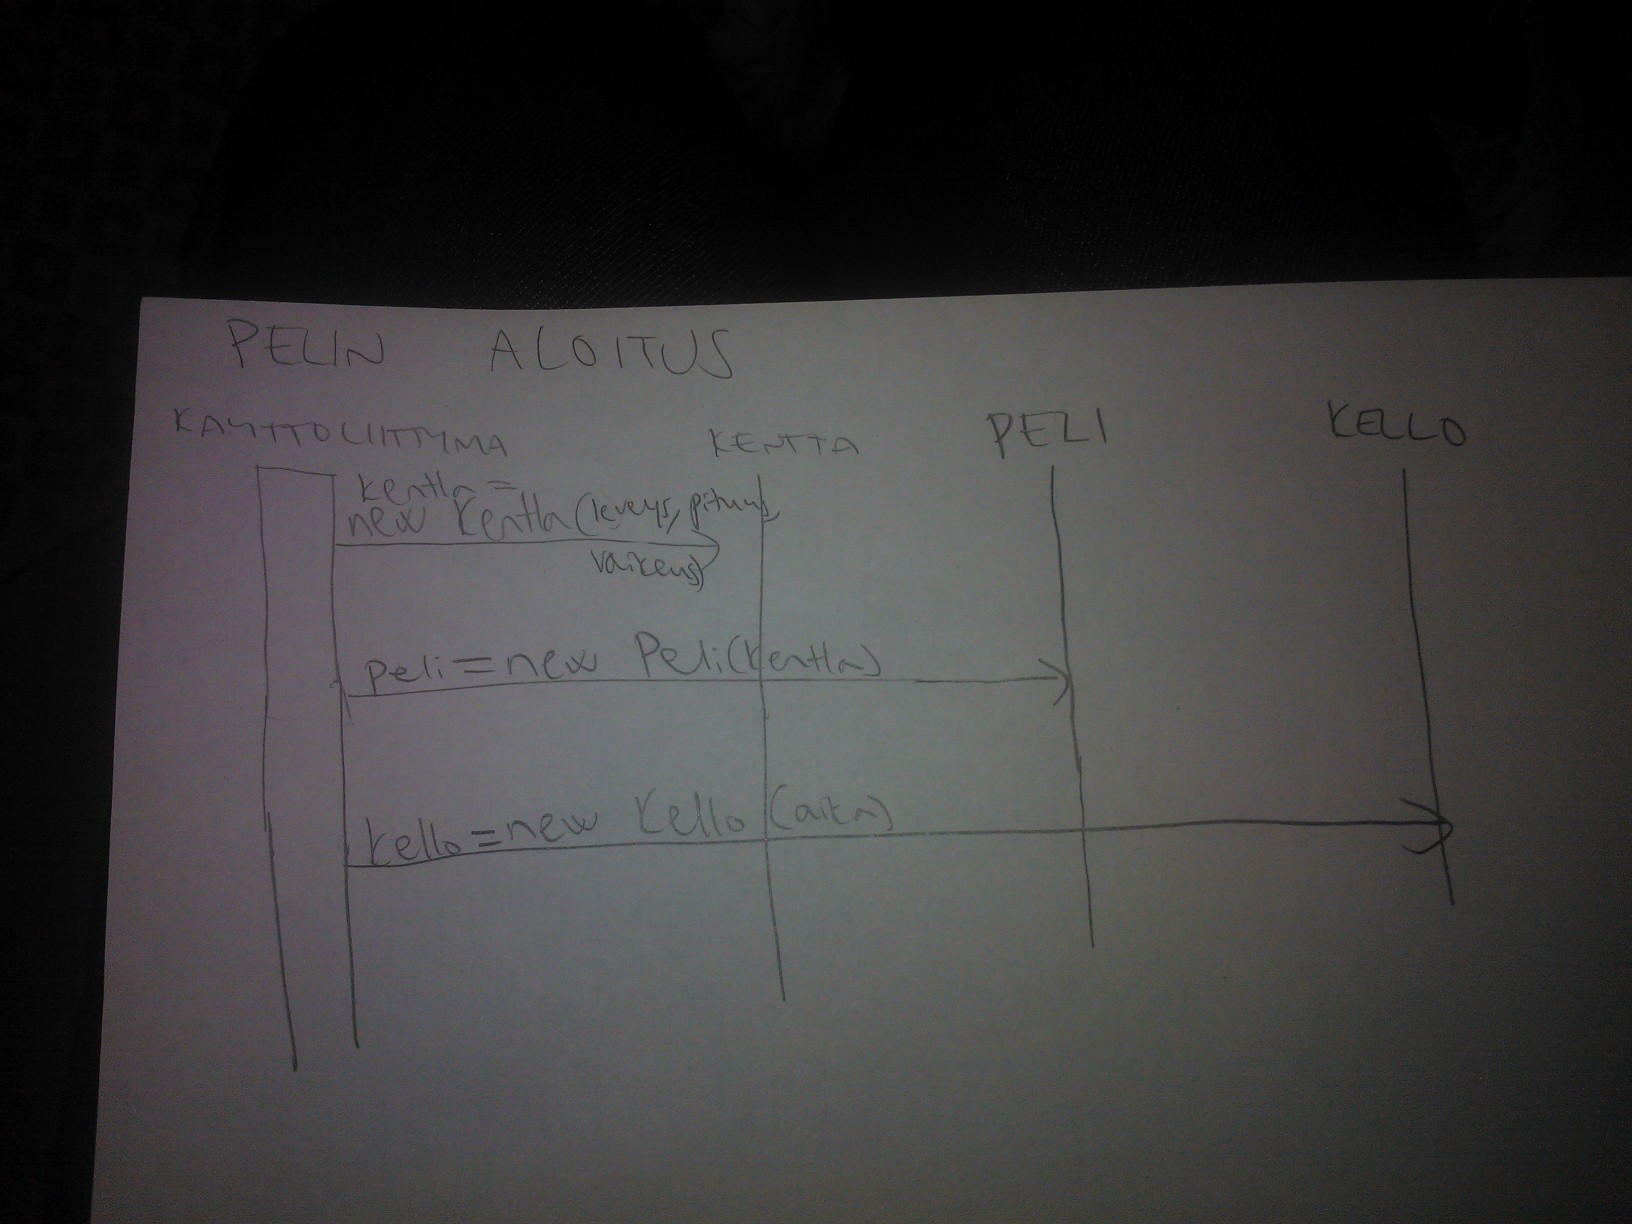 PELIN ALOITUS
KAYTTOLIITTYMA KENTTA PELI KELLO
kentta =
new Kentta(leveys, pituus,
vaikeus)
peli = new Peli(kentta)
kello = new Kello (aika)